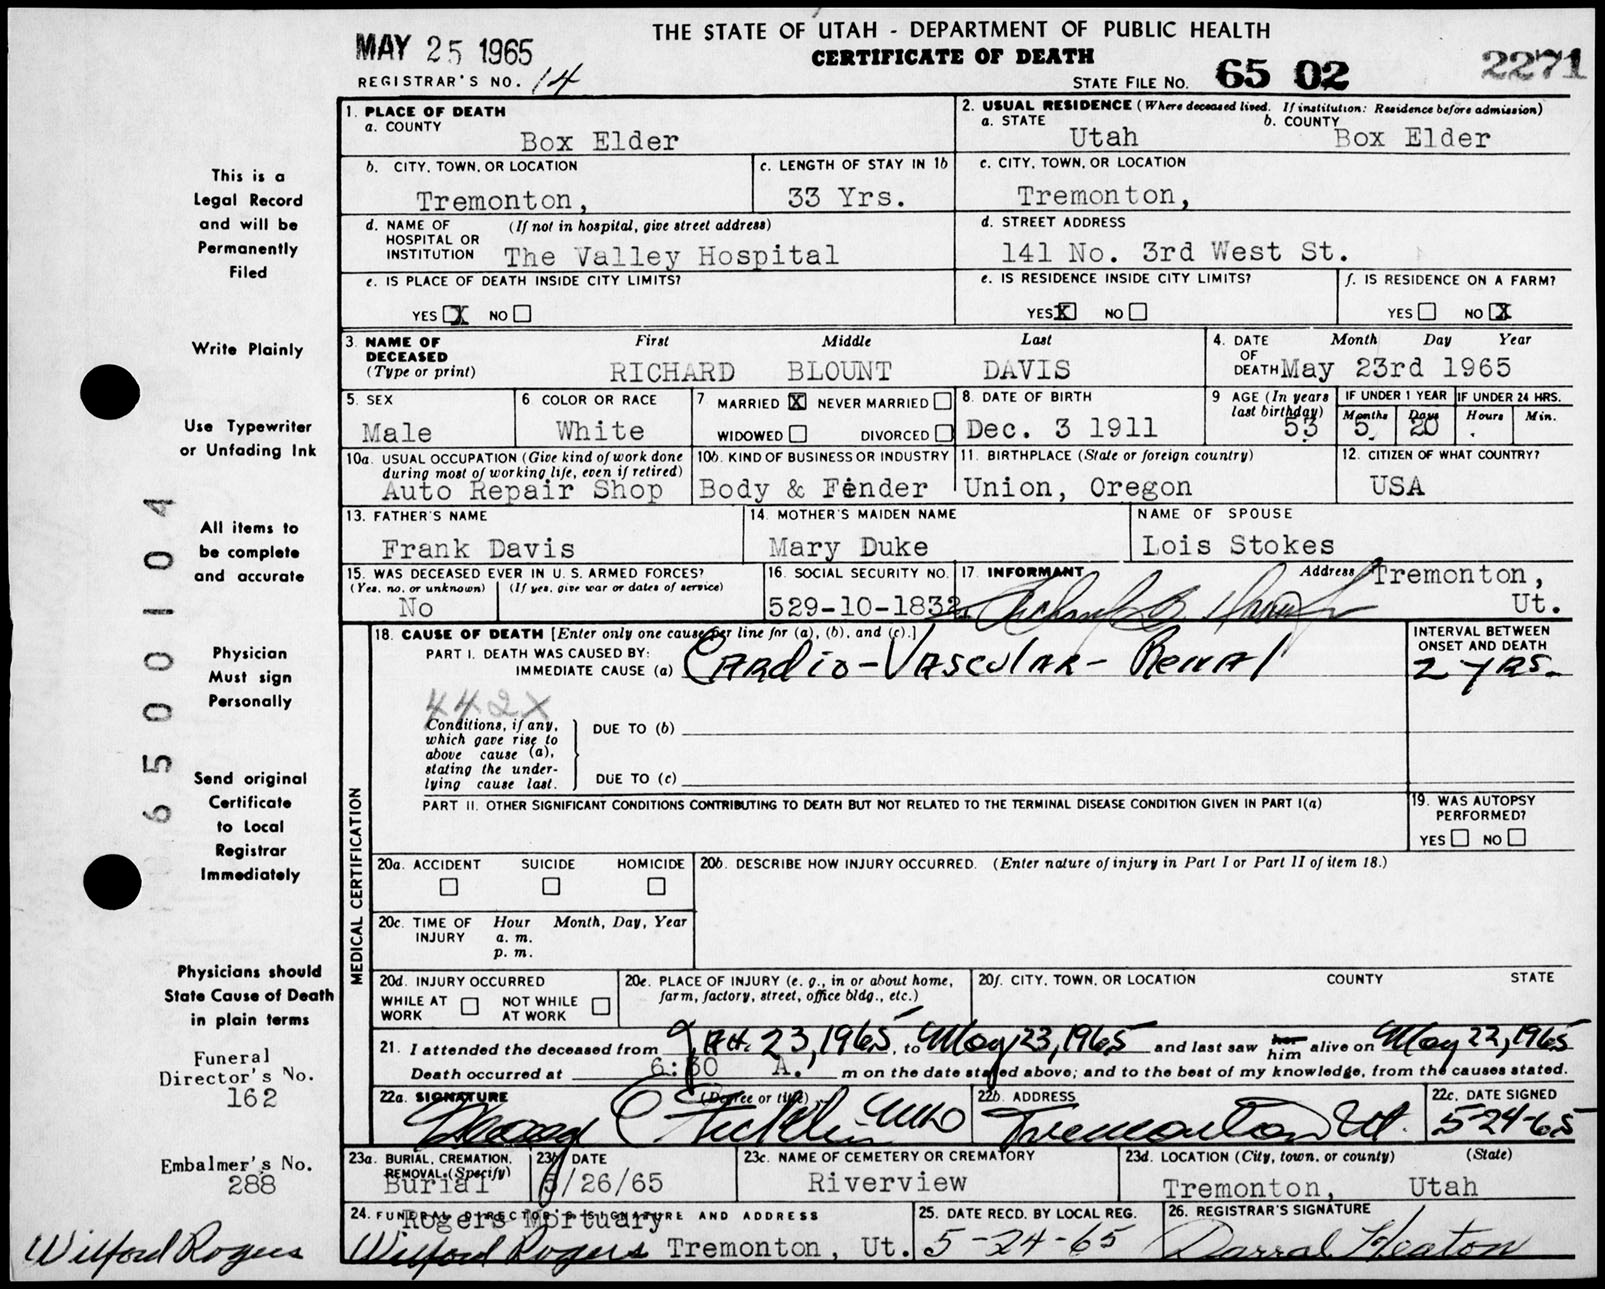 THE STATE OF UTAH - DEPARTMENT OF PUBLIC HEALTH
MAY 25 1965
CERTIFICATE OF DEATH
REGISTRAR'S NO. 14
STATE FILE NO. 65 02 2271
This is a
Legal Record
and will be
Permanently
Filed
Write Plainly
Use Typewriter
or Unfading Ink
All items to
be complete
and accurate
Physician
Must sign
Personally
Send original
Certificate
to Local
Registrar
Immediately
Physicians should
State Cause of Death
in plain terms
Funeral
Director's No.
162
Embalmer's No.
288
Wilford Rogers
6500104
1. PLACE OF DEATH
a. COUNTY
Box Elder
2. USUAL RESIDENCE (Where deceased lived. If institution: Residence before admission)
a. STATE
Utah
b. COUNTY
Box Elder
b. CITY, TOWN, OR LOCATION
Tremonton,
c. LENGTH OF STAY IN 1b
33 Yrs.
c. CITY, TOWN, OR LOCATION
Tremonton,
d. NAME OF HOSPITAL OR INSTITUTION (If not in hospital, give street address)
The Valley Hospital
d. STREET ADDRESS
141 No. 3rd West St.
e. IS PLACE OF DEATH INSIDE CITY LIMITS?
YES X NO
e. IS RESIDENCE INSIDE CITY LIMITS?
YES X NO
f. IS RESIDENCE ON A FARM?
YES NO X
3. NAME OF DECEASED (Type or print)
First Middle Last
RICHARD BLOUNT DAVIS
4. DATE OF DEATH
Month Day Year
May 23rd 1965
5. SEX
Male
6 COLOR OR RACE
White
7 MARRIED X NEVER MARRIED
WIDOWED DIVORCED
8. DATE OF BIRTH
Dec. 3 1911
9 AGE (In years last birthday)
53
IF UNDER 1 YEAR
Months Days
5. 20
IF UNDER 24 HRS.
Hours Min.
10a. USUAL OCCUPATION (Give kind of work done during most of working life, even if retired)
Auto Repair Shop
10b. KIND OF BUSINESS OR INDUSTRY
Body & Fender
11. BIRTHPLACE (State or foreign country)
Union, Oregon
12. CITIZEN OF WHAT COUNTRY?
USA
13. FATHER'S NAME
Frank Davis
14. MOTHER'S MAIDEN NAME
Mary Duke
NAME OF SPOUSE
Lois Stokes
15. WAS DECEASED EVER IN U. S. ARMED FORCES?
(Yes, no, or unknown) (If yes, give war or dates of service)
No
16. SOCIAL SECURITY NO.
529-10-1832
17. INFORMANT
Address Tremonton,
Ut.
MEDICAL CERTIFICATION
18. CAUSE OF DEATH [Enter only one cause per line for (a), (b), and (c).]
PART I. DEATH WAS CAUSED BY:
IMMEDIATE CAUSE (a) Cardio-Vascular-Renal
INTERVAL BETWEEN
ONSET AND DEATH
2 yrs.
442X
Conditions, if any,
which gave rise to
above cause (a),
stating the under-
lying cause last.
DUE TO (b)
DUE TO (c)
PART II. OTHER SIGNIFICANT CONDITIONS CONTRIBUTING TO DEATH BUT NOT RELATED TO THE TERMINAL DISEASE CONDITION GIVEN IN PART I(a)
19. WAS AUTOPSY
PERFORMED?
YES NO
20a. ACCIDENT SUICIDE HOMICIDE
20b. DESCRIBE HOW INJURY OCCURRED. (Enter nature of injury in Part I or Part II of item 18.)
20c. TIME OF INJURY
Hour Month, Day, Year
a. m.
p. m.
20d. INJURY OCCURRED
WHILE AT WORK NOT WHILE AT WORK
20e. PLACE OF INJURY (e. g., in or about home,
farm, factory, street, office bldg., etc.)
20f. CITY, TOWN, OR LOCATION COUNTY STATE
21. I attended the deceased from 23, 1965, to May 23, 1965 and last saw her him alive on May 22, 1965
Death occurred at 6:30 A. m on the date stated above; and to the best of my knowledge, from the causes stated.
22a. SIGNATURE (Degree or title)
22b. ADDRESS
Tremonton Ut.
22c. DATE SIGNED
5-24-65
23a. BURIAL, CREMATION,
REMOVAL (Specify)
Burial
23b DATE
5/26/65
23c. NAME OF CEMETERY OR CREMATORY
Riverview
23d. LOCATION (City, town, or county) (State)
Tremonton, Utah
24. FUNERAL DIRECTOR'S SIGNATURE AND ADDRESS
Rogers Mortuary
Wilford Rogers Tremonton, Ut.
25. DATE RECD. BY LOCAL REG.
5-24-65
26. REGISTRAR'S SIGNATURE
Darral Heaton